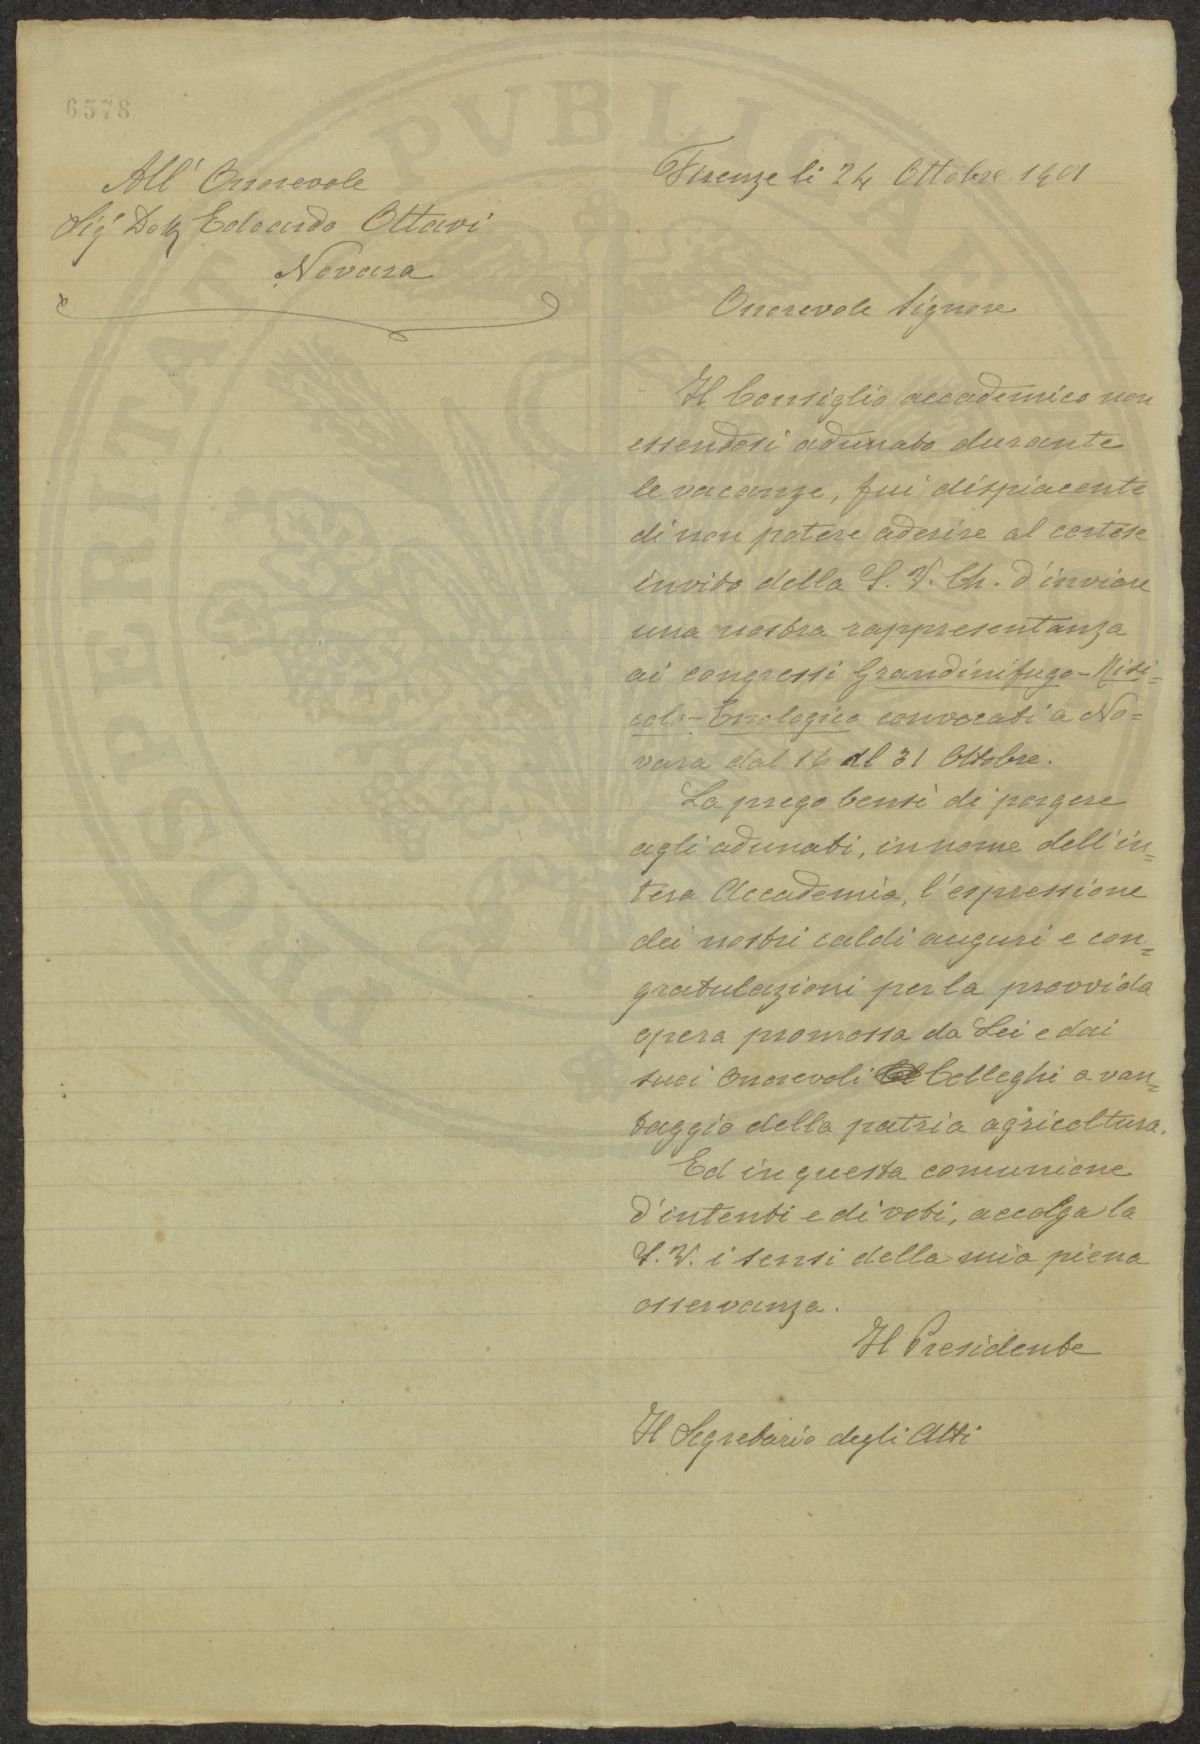 6578
All' Onorevole
Sigr Dott Edoardo Ottavi
Novara
Firenze li 24 Ottobre 1901
Onorevole Signore
Il Consiglio accademico non
essendosi adunato durante
le vacanze, fui dispiacente
di non potere aderire al cortese
invito della S. V. Ch. d'inviare
una nostra rappresentanza
ai congressi Grandinifugo-Risi=
colo-Enologico convocati a No=
vara dal 16 al 31 Ottobre.
La prego bensì di porgere
agli adunati, in nome dell'in=
tera Accademia, l'espressione
dei nostri caldi auguri e con=
gratulazioni per la provvida
opera promossa da Lei e dai
suoi Onorevoli Colleghi a van=
taggio della patria agricoltura.
Ed in questa comunione
d'intenti e di voti, accolga la
S. V. i sensi della mia piena
osservanza.
Il Presidente
Il Segretario degli Atti
PROSPERITATI PVBLICAE